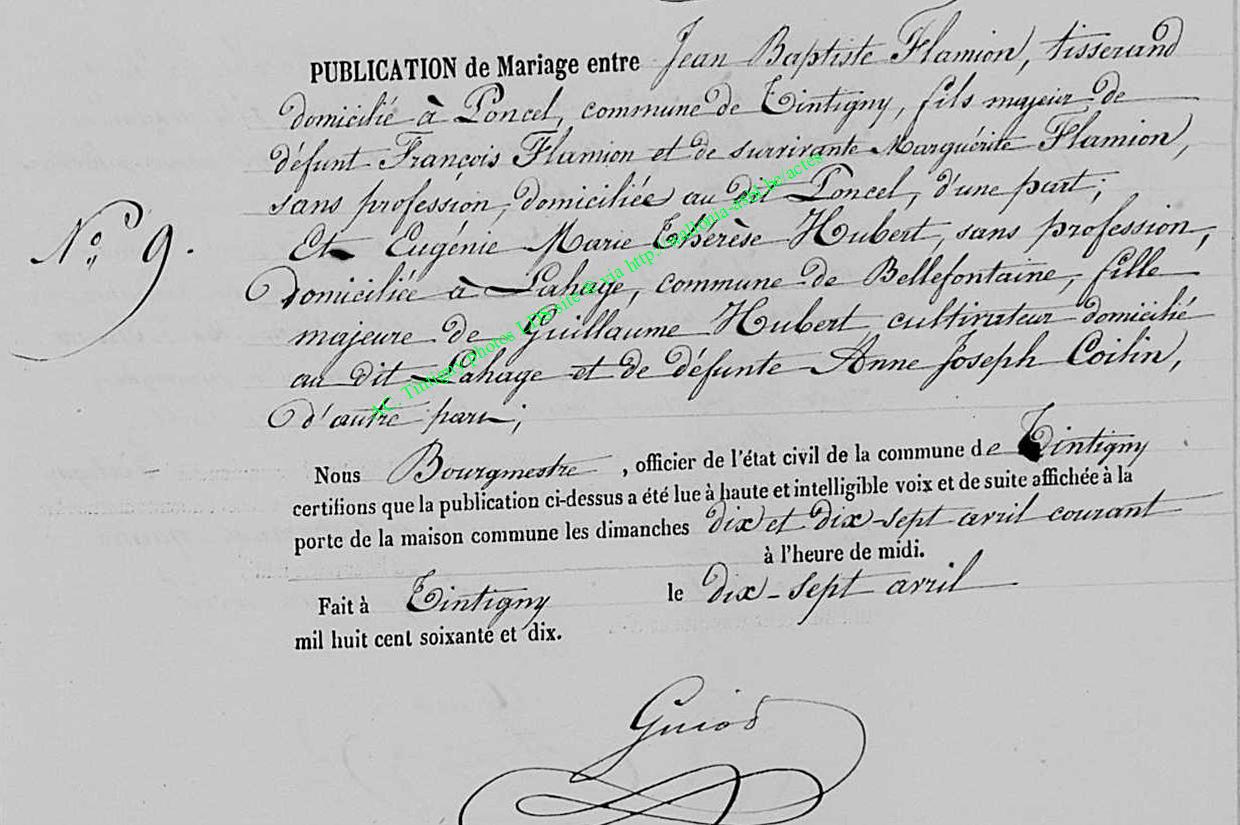 PUBLICATION de Mariage entre Jean Baptiste Flamion, tisserand
domicilié à Poncel, commune de Tintigny, fils majeur de
défunt François Flamion et de survivante Marguérite Flamion,
sans profession, domiciliée au dit Poncel, d'une part;
Et Eugénie Marie Thérèse Hubert, sans profession,
N° 9.
domiciliée à Lahage, commune de Bellefontaine, fille
majeure de Guillaume Hubert, cultivateur domicilié
au dit Lahage et de défunte Anne Joseph Coilin,
d'autre part;
Nous Bourgmestre, officier de l'état civil de la commune de Tintigny
certifions que la publication ci-dessus a été lue à haute et intelligible voix et de suite affichée à la
porte de la maison commune les dimanches dix et dix-sept avril courant
à l'heure de midi.
Fait à Tintigny le dix-sept avril
mil huit cent soixante et dix.
Guiod
A.C. Tintigny photos LDB site @aria http://wallonia-asbl.be/actes